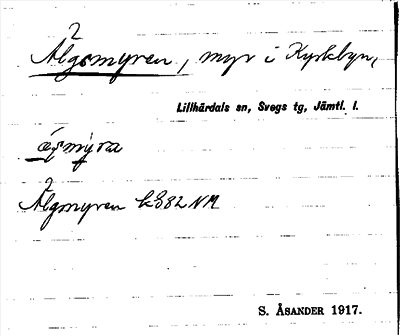 2
Älgsmyren, myr i Kyrkbyn,
Lillhärdals sn, Svegs tg, Jämtl. l.
2
Älgmyren k882NM
S. ÅSANDER 1917.